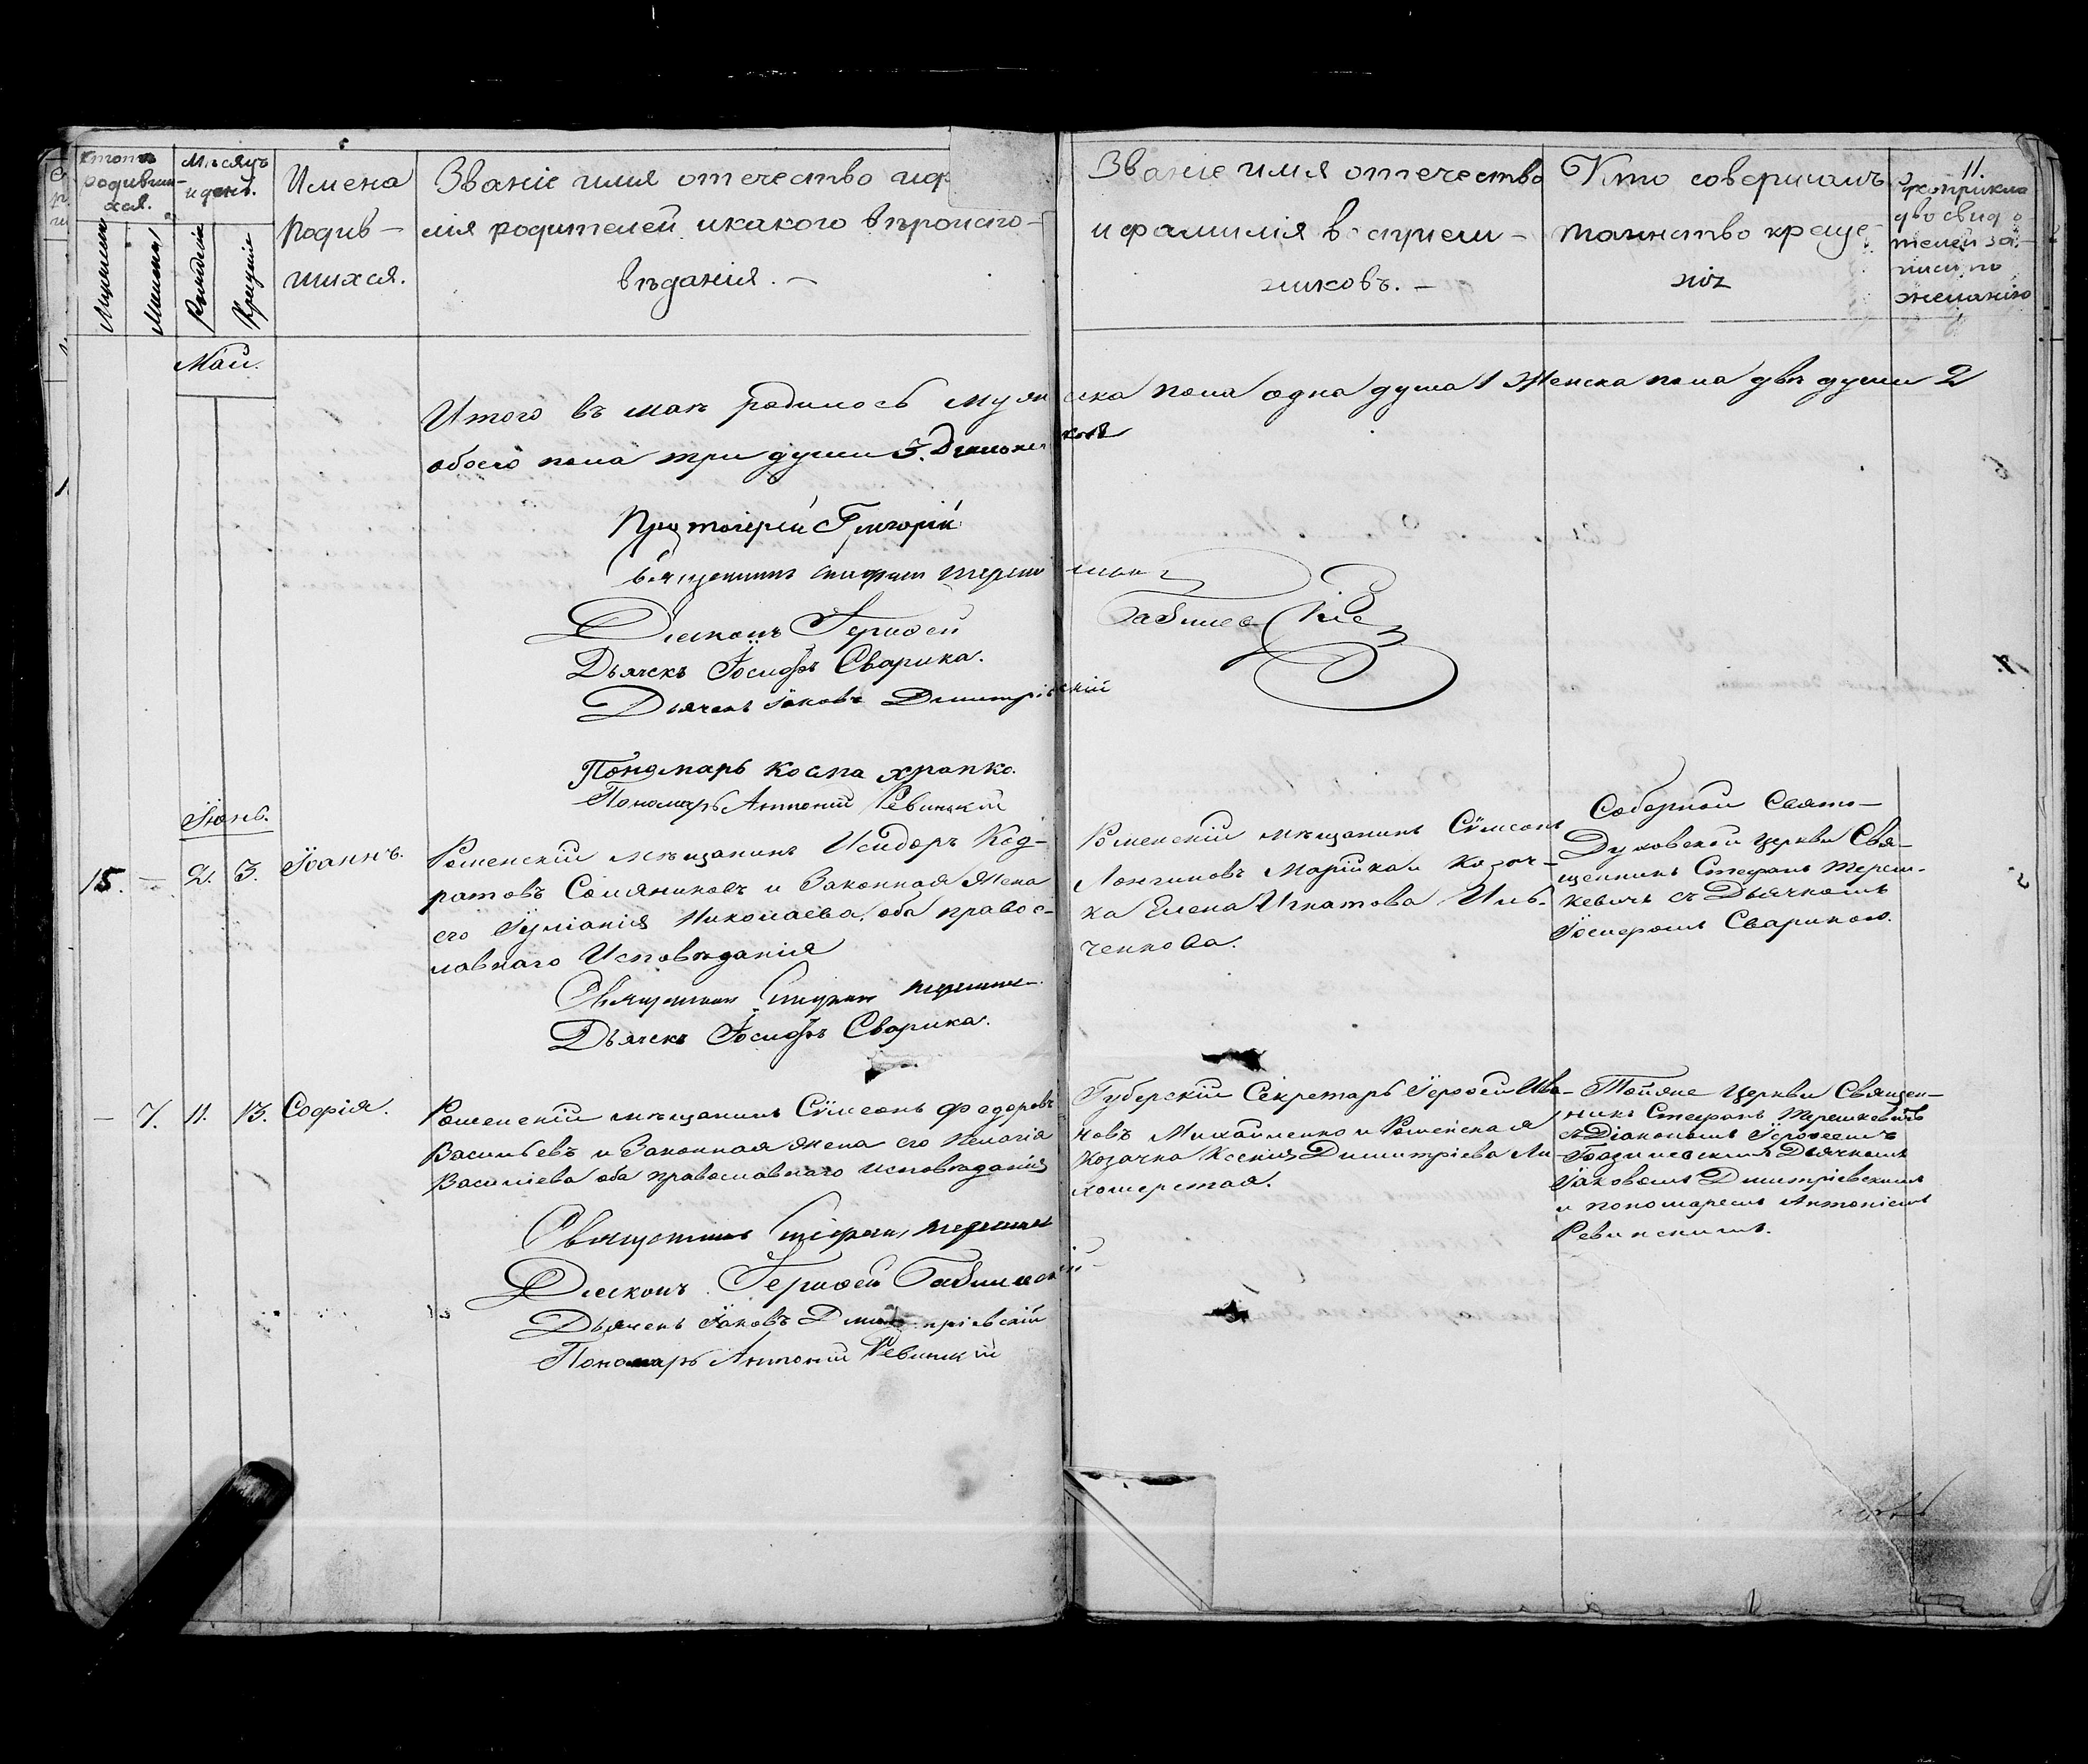 11.
Мѣсяцъ и день.
Рожденія
Крещенія
Имена
родив-
шихся.
Званіе имя отечество и
лія родителей и какого вѣроиспо-
вѣданія. —
Званіе имя отечество
и фамилія воспріем-
никовъ. —
Кто совершалъ
таинство креще-
нія
желанію
Май.
Итого въ маѣ родилось мужска пола одна душа 1 женска пола двѣ души 2
обоего пола три души 3.
Протоіерей Григорій
Священникъ Стефан
Діаконъ Іерофей
Дьячекъ Іосифъ Сварика.
Дьячекъ Іаковъ Димитріевскій
Пономарь Косма Храпко.
Пономарь Антоній Ревинскій
Іюнь.
15. — 2. 3. Іоаннъ.
Роменскій мѣщанинъ Исидоръ Код-
ратовъ Соляниковъ и Законная Жена
его Іуліанія Николаева, оба правос-
лавнаго Исповѣданія
Священник Стефан
Дьячекъ Іосифъ Сварика.
Роменскій мѣщанинъ Сѵмеонъ
Лонгиновъ и козач-
ка Елена Игнатова Иль-
ченкова.
Соборной Свято-
Духовской Церкви Свя-
щенникъ Стефанъ Тереш-
кевичъ съ Дьячкомъ
Іосифомъ Сварикою.
— 7. 11. 13. Софія.
Роменскій мѣщанинъ Сѵмеонъ Федоровъ
Васильевъ и Законная жена его Пелагія
Василіева оба православнаго исповѣданія
Священникъ Стефан
Діаконъ Іерофей
Дьячекъ Іаковъ Димитріевскій
Пономарь Антоній Ревинскій
Губерскій Секретарь Іерофей Ива-
новъ Михайленко и Роменская
Козачка Ксенія Димитріева Ли-
хошерстая.
Тойже Церкви Священ-
никъ Стефанъ Терешкевичъ
съ Діакономъ Іерофеемъ
Дьячкомъ
Іаковомъ Димитріевскимъ
и пономаремъ Антоніемъ
Ревинскимъ.